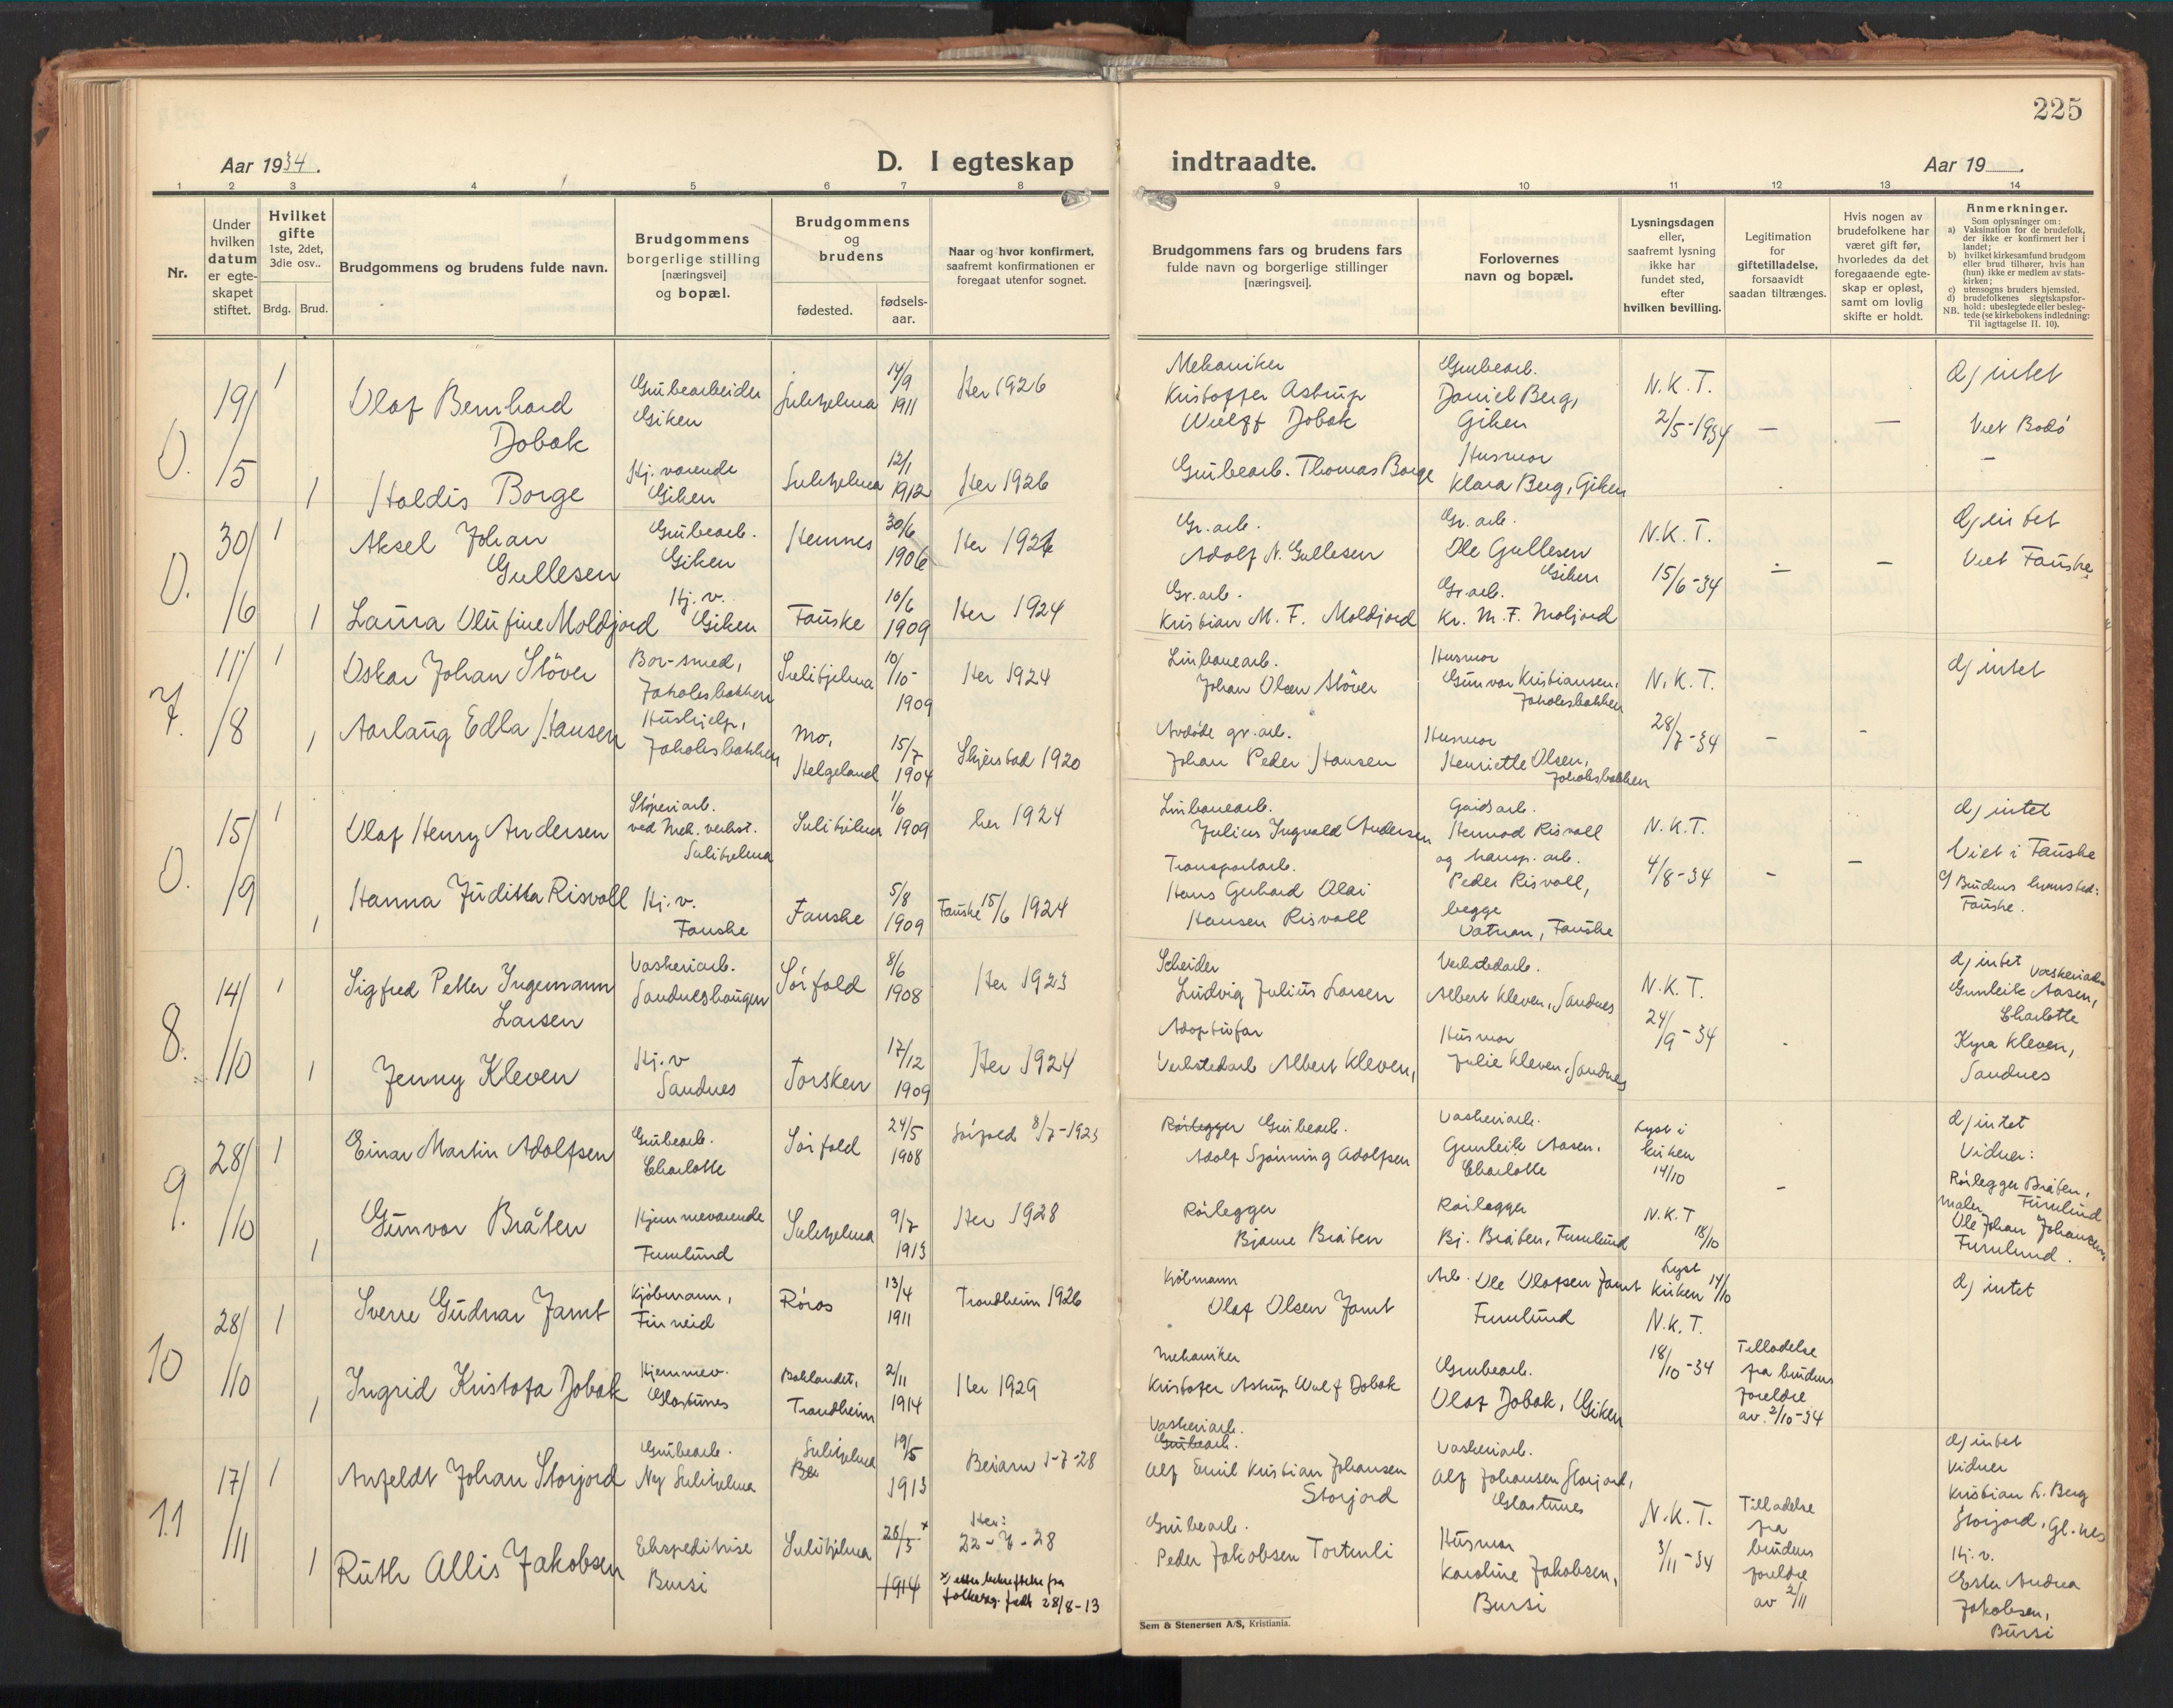 225
Aar 1934.
D. I egteskap indtraadte.
Aar 19
1 2 3 4 5 6 7 8 9 10 11 12 13 14
Nr.
Under
hvilken
datum
er egte-
skapet
stiftet.
Hvilket
gifte
1ste, 2det,
3die osv..
Brdg. Brud.
Brudgommens og brudens fulde navn.
Brudgommens
borgerlige stilling
[næringsvei]
og bopæl.
Brudgommens
og
brudens
fødested.
fødsels-
aar.
Naar og hvor konfirmert,
saafremt konfirmationen er
foregaat utenfor sognet.
Brudgommens fars og brudens fars
fulde navn og borgerlige stillinger
[næringsvei].
Forlovernes
navn og bopæl.
Lysningsdagen
eller,
saafremt lysning
ikke har
fundet sted,
efter
hvilken bevilling.
Legitimation
for
giftetilladelse,
forsaavidt
saadan tiltrænges.
Hvis nogen av
brudefolkene har
været gift før,
hvorledes da det
foregaaende egte-
skap er opløst,
samt om lovlig
skifte er holdt.
Anmerkninger.
Som oplysninger om:
a) Vaksination for de brudefolk,
der ikke er konfirmert her i
landet;
b) hvilket kirkesamfund brudgom
eller brud tilhører, hvis han
(hun) ikke er medlem av stats-
kirken;
c) utensogns bruders hjemsted.
d) brudefolkenes slegtskapsfor-
hold: ubeslegtede eller besleg-
NB. tede (se kirkebokens indledning:
Til iagttagelse II. 10).
0.
19/
/5
1
Olaf Bernhard
Dobak
Grubearbeider
Giken
Sulitjelma
14/9
1911
Her 1926
Mekaniker
Kristoffer Astrup
Wulff Dobak
Grubearb.
Daniel Berg,
Giken
N.K.T.
2/5-1934
—
—
d) intet
Viet Bodö
1
Haldis Borge
Hj. værende
Giken
Sulitjelma
12/1
1912
Her 1926
Grubearb. Thomas Borge
Husmor
Klara Berg, Giken
0.
30/
/6
1
Aksel Johan
Gullesen
Grubearb.
Giken
Hemnes
30/6
1906
Her 192
Gr. arb.
Adolf N. Gullesen
Gr. arb.
Ole Gullesen
Giken
N.K.T.
15/6-34
—
—
d) intet
Viet Fauske
1
Laura Olufine Moldjord
Hj. v.
Giken
Fauske
10/6
1909
Her 1924
Gr. arb.
Kristian M. F. Moldjord
Gr. arb.
Kr. M. F. Moljord
7.
11/
/8
1
Oskar Johan Stöver
Bor-smed,
Jakobsbakken
Sulitjelma
10/10-
1909
Her 1924
Linbanearb.
Johan Olsen Stöver
Husmor
Gunvor Kristiansen,
Jakobsbakken
N.K.T.
28/7-34
—
—
d) intet
1
Aaslaug Edla Hansen
Hushjelp,
Jakobsbakken
Mo,
Helgeland
15/7
1904
Skjerstad 1920
Avdøde gr. arb.
Johan Peder Hansen
Husmor
Henriette Olsen,
Jakobsbakken
0.
15/
/9
1
Olaf Henry Andersen
Støperiarb.
ved Mek. verkst.
Sulitjelma
Sulitjelma
1/6
1909
her 1924
Linbanearb.
Julius Ingvald Andersen
Gaardsarb.
Hermod Risvoll
og transp. arb.
Peder Risvoll,
begge
Vatnan, Fauske
N.K.T.
4/8-34
—
—
d) intet
Viet i Fauske
c) Brudens hjemsted:
Fauske.
1
Hanna Juditta Risvoll
Hj. v.
Fauske
Fauske
5/8
1909
Fauske 15/6 1924
Transportarb.
Hans Gerhard Olai
Hansen Risvoll
8.
14/
/10
1
Sigfred Petter Ingemann
Larsen
Vaskeriarb.
Sandneshaugen
Sørfold
8/6
1908
Her 1923
Scheider
Ludvig Julius Larsen
Verkstedarb.
Albert Kleven, Sandnes
N.K.T.
24/9-34
d) intet Vaskeriarb.
Gunleik Aasen,
Charlotte
Kyra Kleven,
Sandnes
1
Jenny Kleven
Hj. v
Sandnes
Torsken
17/12
1909
Her 1924
Adoptivfar
Verkstedarb Albert Kleven,
Husmor
Julie Kleven, Sandnes
9.
28/
/10
1
Einar Martin Adolfsen
Grubearb.
Charlotte
Sørfold
24/5
1908
Sørfold 8/7-1923
Rørlegger Grubearb.
Adolf Sjønning Adolfsen
Vaskeriarb.
Gunleik Aasen,
Charlotte
Lyst i
kirken
14/10
N.K.T
18/10
—
d) intet
Vidner:
Rørlegger Bråten,
Furulund
maler
Ole Johan Johansen,
Furulund.
1
Gunvor Bråten
Hjemmeværende
Furulund
Sulitjelma
9/7
1913
Her 1928
Rørlegger
Bjarne Bråten
Rørlegger
Bj. Bråten, Furulund
10
28/
/10
1
Sverre Gudnar Jamt
Kjøbmann,
Finneid
Røros
13/4
1911
Trondheim 1926
Kjøbmann
Olaf Olsen Jamt
Arb. Ole Olafsen Jamt
Furulund
Lyst
kirken 14/10
N.K.T.
18/10-34
Tilladelse
fra brudens
foreldre
av 2/10-34
d) intet
1
Ingrid Kristofa Dobak
Hjemmev.
Glastunes
Baklandet,
Trondheim
2/11
1914
Her 1929
Mekaniker
Kristofer Astrup Wulf Dobak
Grubearb.
Olaf Dobak, Giken
11
17/
/11
1
Anfeldt Johan Storjord
Grubearb.
Ny Sulitjelma
Sulitjelma
Bei
19/5
1913
Beiarn 1-7-28
Vaskeriarb.
Grubearb.
Alf Emil Kristian Johansen
Storjord
Vaskeriarb.
Alf Johansen Storjord,
Glastunes
N.K.T.
3/11-34
Tilladelse
fra
brudens
foreldre
av 2/11
d) intet
Vidner
Kristian L. Berg
Storjord, Gl.nes
Hj. v.
Ester Andrea
Jakobsen,
Bursi
1
Ruth Allis Jakobsen
Ekspeditrise
Bursi
Sulitjelma
28/5 x
1914
Her:
22-7-28
x) etter bekreftelse fra
folkereg. født 28/8-13
Grubearb.
Peder Jakobsen Tortenli
Husmor
Karoline Jakobsen,
Bursi
Sem & Stenersen A/S, Kristiania.